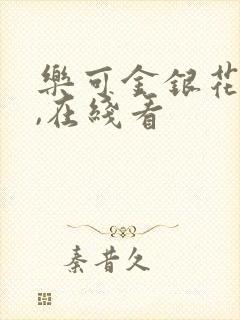 樂可金銀花
,在綫看
秦昔久